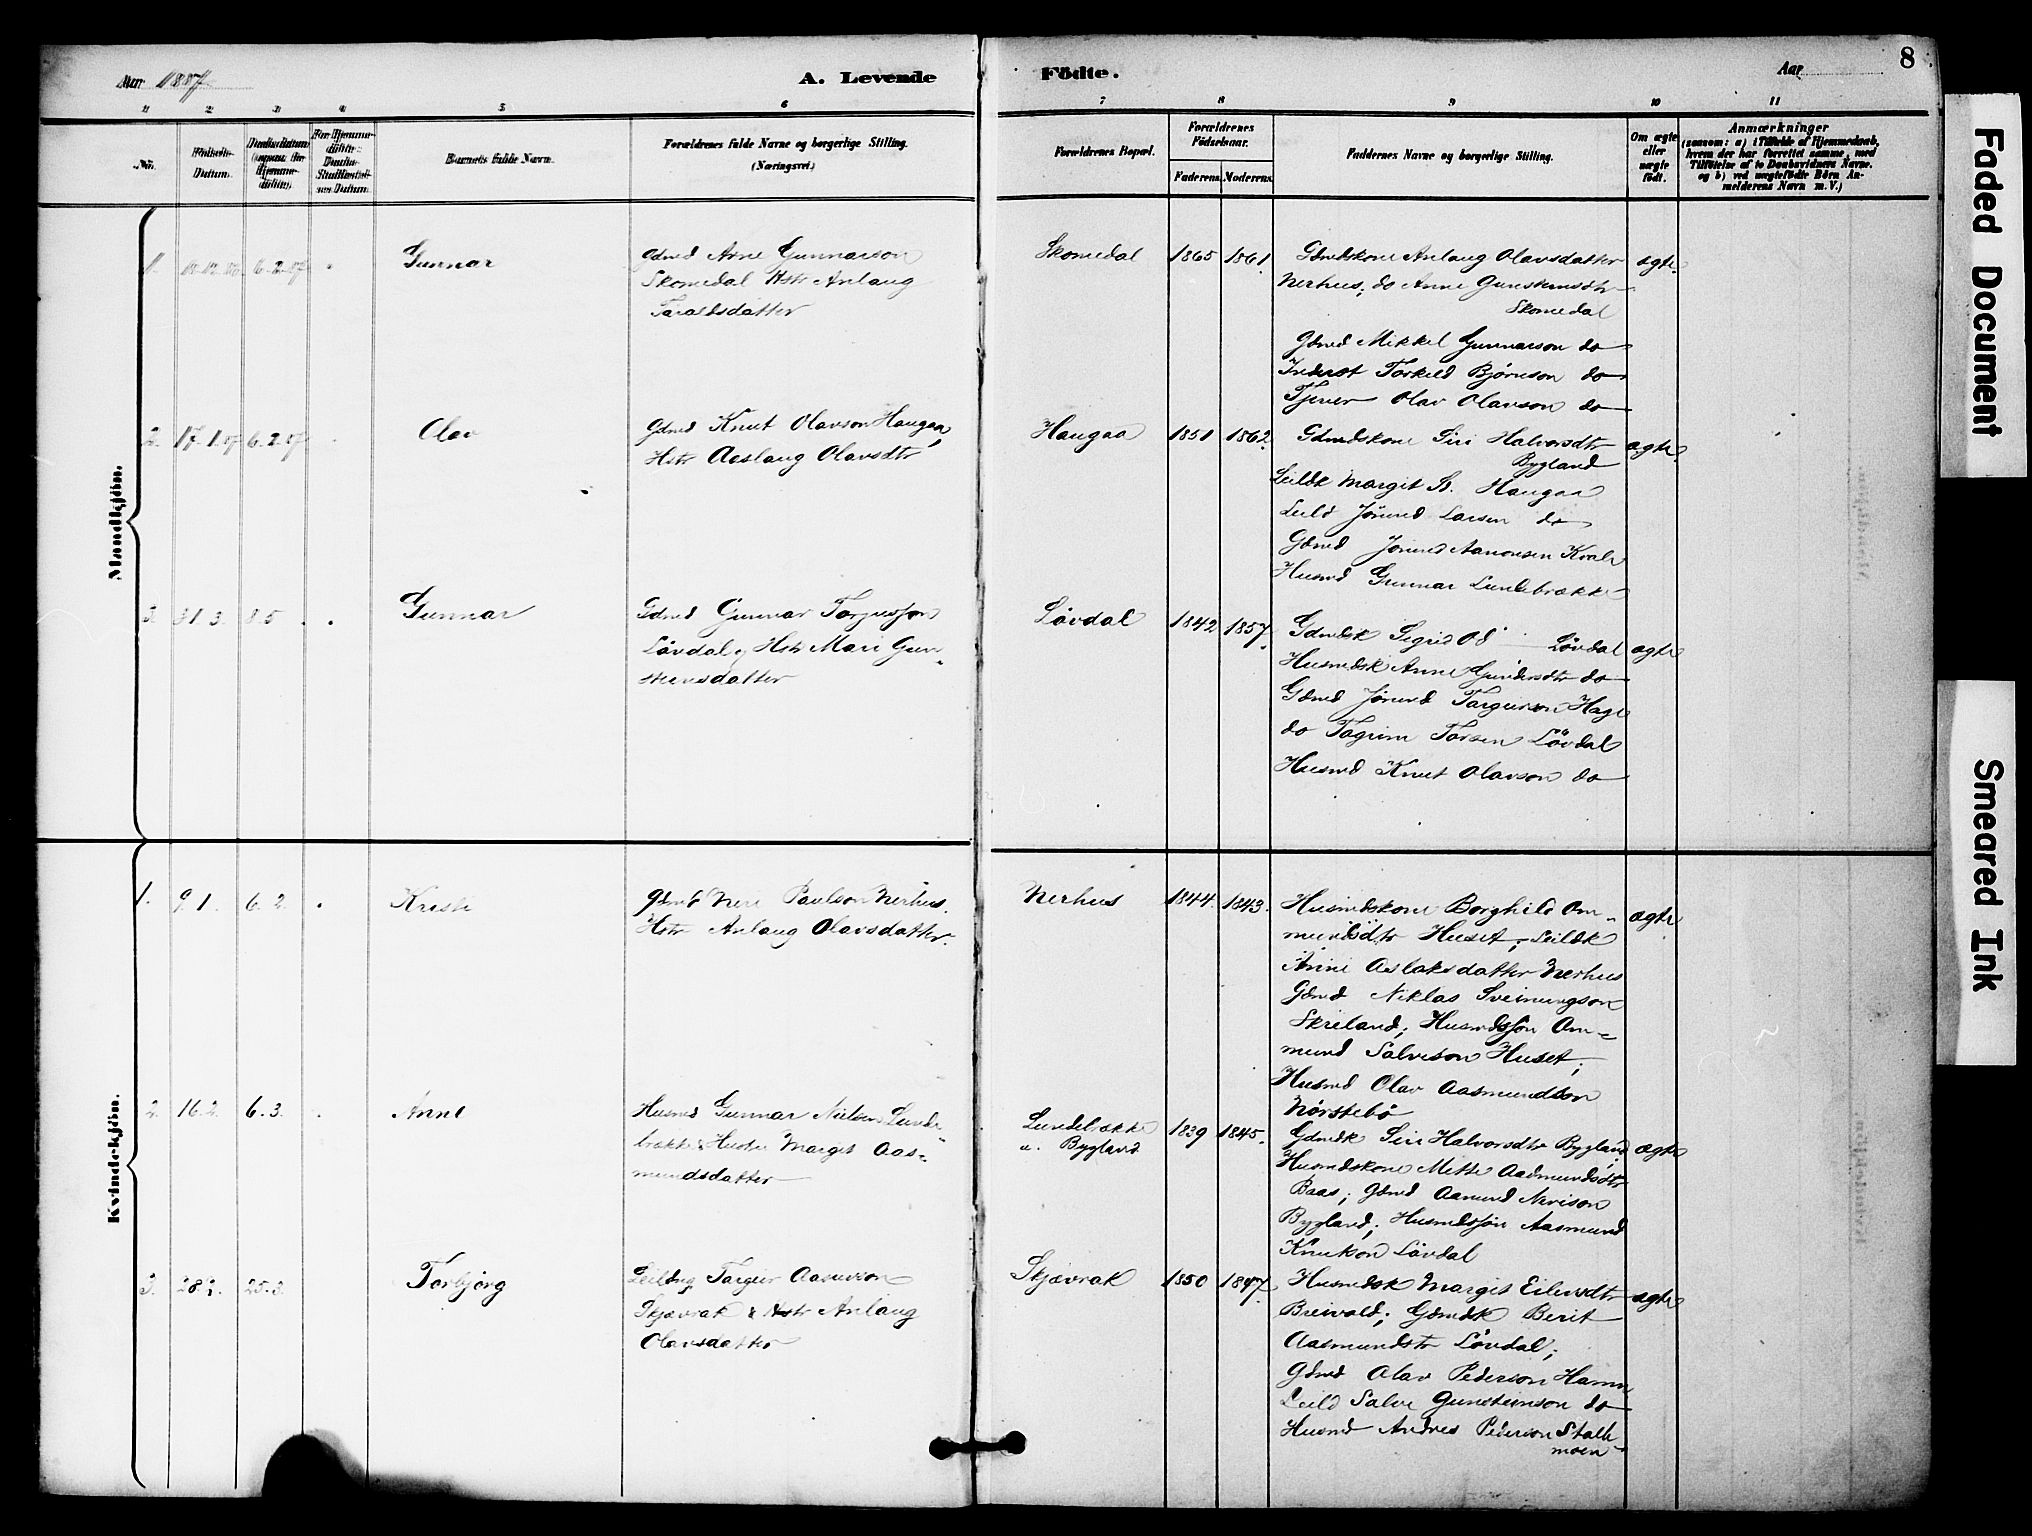 Aar 1887
A. Levende
Födte.
Aar
8
1 2 3 4 5 6 7 8 9 10 11
No.
Födsels-Datum.
Barnets fulde Navn.
Forældrenes fulde Navne og borgerlige Stilling.
(Næringsvei.)
Forældrenes Bopæl.
Forældrenes Födselsaar.
Faderens. Moderens.
Faddernes Navne og borgerlige Stilling.
Om ægte eller uægte födt.
Anmærkninger
(saasom: a) i Tilfælde af Hjemmedaab,
hvem der har forrettet samme, med
Tilföielse af to Daabsvidners Navne.
og b) ved uægtefödte Börn An-
melderens Navn m.V.)
Mandkjön.
1. 6.2.87 Gunnar
Gdmd Arne Gunnarson
Skomedal Hstr Anlaug
Taraldsdatter
Skomedal 1865 1861.
Gdmdskone Anlaug Olavsdatter
Nerhus; do Anne Gunsteinsdtr
Skomedal
Gdmd Mikkel Gunnarson do
Inderst Torkild Björnson do
Tjener Olav Olavson do
ægte.
2. 17.1.87 6.2.87 Olav
Gdmd Knut Olavson Haugaa,
Hstr Aslaug Olavsdtr
Haugaa 1851 1862.
Gdmdskone Siri Halvorsdtr
Bygland
Leildk Margit S. Haugaa
Leild Jörund Larsen do
Gdmd Jörund Aanonsen Kvale
Husmd Gunnar Lundebrække
ægte.
3. 31.3. 8.5 Gunnar
Gdmd Gunnar Torjusson
Lövdal og Hstr Mari Gun-
steinsdatter
Lövdal 1842 1857.
Gdmdsk Sigrid Od Lövdal
Husmdsk Anne Gundersdtr do
Gdmd Jörund Targuson Hage
do Tagrim Torsen Lövdal
Husmd Knut Olavson do
ægte
Kvindekjön.
1. 9.1. 6.2. Kristi
Gdmd Neri Paulson Nerhus.
Hstr Anlaug Olavsdatter.
Nerhus 1844. 1843.
Husmdskone Borghild Om-
mundsdtr Huset; Leildk
Anne Aslaksdatter Nerhus
Gdmd Niklas Sveinungson
Skreland; Husmdssön Om-
mund Salveson Huset;
Husmd Olav Aasmundson
Nörstebö
ægte
2. 16.2. 6.3. Anne
Husmd Gunnar Nielsen Lunde-
brække & Hustru Margit Aas-
mundsdatter
Lundebrække
u. Bygland
1839 1845.
Gdmdk Siri Halvorsdtr Bygland
Husmdskone Mette Aasmundsdtr
Baas; Gdmd Aamund Nerison
Bygland; Husmdssön Aasmund
Knutson Lövdal
ægte
3. 25.3. Torbjörg
Leildng Targier Aasuvson
Skjævrak & Hstr Anlaug
Olavsdatter
Skjævrak 1850 1847.
Husmdsk Margit Eilevsdtr
Breivold; Gdmdsk Berit
Aasmundsdtr Lövdal;
Gdmd Olav Pederson Hamre
Leild Salve Gunsteinson do
Husmd Andres Pederson Stalle-
moen
ægte
Faded Document
Smeared Ink